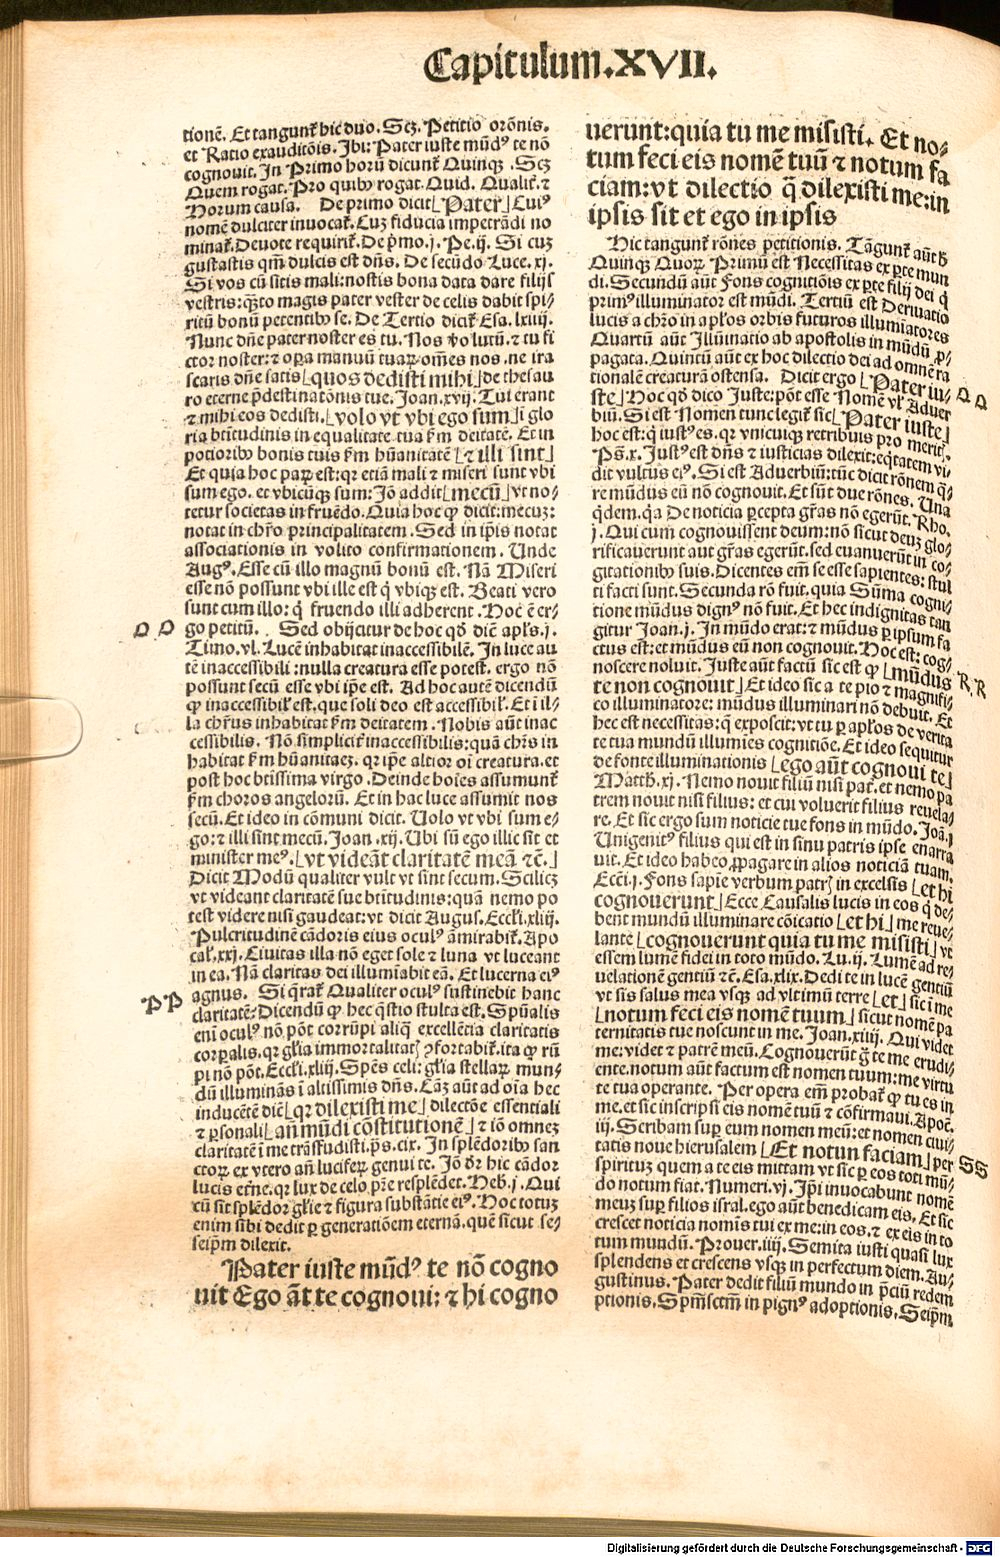 Capitulum.XVII.
tionē. Et tangunt̄ hic duo. Scꝫ. Petitio orōnis.
et Ratio exauditōis. Ibi: Pater iuste mūdꝰ te nō
cognouit. In Primo horū dicunt̄ Quinqꝫ. Scꝫ
Quem rogat. Pro quibꝰ rogat. Quid. Qualit̄. ⁊
Horum causa. De primo dicit ⌊Pater⌋ Cuiꝰ
nomē dulciter inuocat̄. Cuꝫ fiducia impetrādi no
minat̄. Deuote requirit̄. De p̄mo. j. Pe. ij. Si cuꝫ
gustastis qm̄ dulcis est dn̄s. De secūdo Luce. xj.
Si vos cū sitis mali: nostis bona data dare filijs
vestris: qꝫto magis pater vester de celis dabit spi⸗
ritū bonū petentibꝰ se. De Tertio dicit̄ Esa. lxiiij.
Nunc dn̄e pater noster es tu. Nos v̄o lutū. ⁊ tu fi
ctor noster: ⁊ oꝑa manuū tuaꝝ om̄es nos. ne ira
scaris dn̄e satis ⌊quos dedisti mihi⌋ de thesau
ro eterne p̄destinatōnis tue. Joan. xvij. Tui erant
⁊ mihi eos dedisti. ⌊volo vt vbi ego sum⌋ ī glo
ria btītudinis in equalitate tua ẜm deitatē. Et in
potioribꝰ bonis tuis ẜm hūanitatē ⌊⁊ illi sint⌋
Et quia hoc paꝝ est: qꝛ etiā mali ⁊ miseri sunt vbi
sum ego. et vbicūqꝫ sum: Jō addit ⌊mecū⌋ vt no⸗
tetur societas in fruēdo. Quia hoc ꝙ dicit: mecuꝫ:
notat in chr̄o principalitatem. Sed in ip̄is notat
associationis in volito confirmationem. Unde
Augꝰ. Esse cū illo magnū bonū est. Nā Miseri
esse nō possunt vbi ille est q̄ vbiqꝫ est. Beati vero
sunt cum illo: q̄ fruendo illi adherent. Hoc ē er⸗
O O go petitū. Sed obijcitur de hoc qd̄ diē apl̄s. j.
Timo. vl. Lucē inhabitat inaccessibilē. In luce au
tē inaccessibili: nulla creatura esse potest. ergo nō
possunt secū esse vbi ip̄e est. Ad hoc autē dicendū
ꝙ inaccessibil̄ est, que soli deo est accessibil̄. Et ī il⸗
la chr̄us inhabitat ẜm deitatem. Nobis aūt inac
cessibilis. Nō simplicit̄ inaccessibilis: quā chr̄s in
habitat ẜm hūanitateꝫ. qꝛ ip̄e altior oī creatura. et
post hoc btīssima virgo. Deinde hoīes assumunt̄
ẜm choros angelorū. Et in hac luce assumit nos
secū. Et ideo in cōmuni dicit. Uolo vt vbi sum e⸗
go: ⁊ illi sint mecū. Joan. xij. Ubi sū ego illic sit et
minister meꝰ. ⌊vt videāt claritatē meā ⁊c̄.⌋
Dicit Modū qualiter vult vt sint secum. Scilicꝫ
vt videant claritatē sue btītudinis: quā nemo po
test videre nisi gaudeat: vt dicit Augus. Eccl̄i. xliij.
Pulcritudinē cādoris eius oculꝰ āmirabit̄. Apo
cal̄. xxj. Ciuitas illa nō eget sole ⁊ luna vt luceant
in ea. Nā claritas dei illumīabit eā. Et lucerna eiꝰ
PP agnus. Si q̄rat̄ Qualiter oculꝰ sustinebit hanc
claritatē: Dicendū ꝙ hec q̄stio stulta est. Spūalis
enī oculꝰ nō pōt corrūpi aliq̄ excellētia claritatis
corꝑalis. qꝛ gl̄ia immortalitatꝭ ꝯfortabit̄. ita ꝙ rū
pi nō pōt. Eccl̄i. xliij. Spēs celi: gl̄ia stellaꝝ mun⸗
dū illuminās ī altissimis dn̄s. Cāꝫ aūt ad oīa hec
inducētē diē ⌊qꝛ dilexisti me⌋ dilectōe essentiali
⁊ ꝑsonali ⌊an̄ mūdi cōstitutionē⌋ ⁊ iō omneꝫ
claritatē ī me trāsfudisti. p̄s. cix. In splēdoribꝰ san
ctoꝝ ex vtero an̄ lucifeꝝ genui te. Jō dr̄ hic cādor
lucis et̄ne. qꝛ lux de celo p̄re resplēdet. Heb. j. Qui
cū sit splēdor gl̄ie ⁊ figura substātie eiꝰ. Hoc totuꝫ
enim sibi dedit ꝑ generatiōem eternā. quē sicut se⸗
seip̄m dilexit.
Pater iuste mūdꝰ te nō cogno
uit Ego āt te cognoui: ⁊ hi cogno
uerunt: quia tu me misisti. Et no⸗
tum feci eis nomē tuū ⁊ notum fa
ciam: vt dilectio q̄ dilexisti me: in
ipsis sit et ego in ipsis
Hic tangunt̄ rōnes petitionis. Tāgunt̄ aūt h̄
Quinqꝫ Quoꝝ Primū est Necessitas ex ꝑte mun
di. Secundū aūt Fons cognitiōis ex ꝑte filij dei q̄
primꝰ illuminator est mūdi. Tertiū est Deriuatio
lucis a chr̄o in apl̄os orbis futuros illumīatores
Quartū aūt Illūinatio ab apostolis in mūdū ꝓ⸗
pagata. Quintū aūt ex hoc dilectio dei ad omnē ra
tionalē creaturā ostensa. Dicit ergo ⌊Pater iu⸗ O O
ste⌋ Hoc qd̄ dico Juste: pōt esse Nomē vl̄ Aduer
biū. Si est Nomen tunc legit̄ sic ⌊Pater iuste⌋
hoc est: q̄ iustꝰ es. qꝛ vnicuiqꝫ retribuis pro meritꝭ.
Ps̄. x. Justꝰ est dn̄s ⁊ iusticias dilexit: eq̄tatem vi⸗
dit vultus eiꝰ. Si est Aduerbiū: tūc dicit rōnem q̄⸗
re mūdus eū nō cognouit. Et sūt due rōnes. Una
q̄dem. qꝛa De noticia ꝑcepta gr̄as nō egerūt. Rho.
j. Qui cum cognouissent deum: nō sicut deuꝫ glo⸗
rificauerunt aut gr̄as egerūt. sed euanuerūt in co⸗
gitationibꝰ suis. Dicentes em̄ se esse sapientes: stul
ti facti sunt. Secunda rō fuit. quia Sūma cogni⸗
tione mūdus dignꝰ nō fuit. Et hec indignitas tan
gitur Joan. j. In mūdo erat: ⁊ mūdus ꝑ ipsum fa
ctus est: et mūdus eū non cognouit. Hoc est: cog⸗
noscere noluit. Juste aūt factū sic est ꝙ ⌊mūdus R R
te non cognouit⌋ Et ideo sic a te pio ⁊ magnifi⸗
co illuminatore: mūdus illuminari nō debuit. Et
hec est necessitas: q̄ exposcit: vt tu ꝑ apl̄os de verita
te tua mundū illumīes cognitiōe. Et ideo sequitur
de fonte illuminationis ⌊ego aūt cognoui te⌋
Matth. xj. Nemo nouit filiū nisi pat̄. et nemo pa
trem nouit nisi filius: et cui voluerit filius reuela⸗
re. Et sic ergo sum noticie tue fons in mūdo. Joā. j
Unigenitꝰ filius qui est in sinu patris ipse enarra
uit. Et ideo habeo ꝓpagare in alios noticiā tuam.
Ecc̄i. j. Fons sapīe verbum patrꝭ in excelsis ⌊et hi
cognouerunt⌋ Ecce Causalis lucis in eos q̄ de⸗
bent mundū illuminare cōicatio ⌊et hi⌋ me reue⸗
lante ⌊cognouerunt quia tu me misisti⌋ vt
essem lumē fidei in toto mūdo. Lu. ij. Lumē ad re⸗
uelationē gentiū ⁊c̄. Esa. xlix. Dedi te in lucē gentiū
vt sis salus mea vsqꝫ ad vltimū terre ⌊et⌋ sic ī me
⌊notum feci eis nomē tuum⌋ sicut nomē pa
ternitatis tue noscunt in me. Joan. xiiij. Qui videt
me: videt ⁊ patrē meū. Cognouerūt g̊ te me erudi⸗
ente. notum aūt factum est nomen tuum: me virtu
te tua operante. Per opera em̄ probat̄ ꝙ tu es in
me. et sic inscripsi eis nomē tuū ⁊ cōfirmaui. Apoc̄.
iij. Scribam suꝑ eum nomen meū: et nomen ciui⸗
tatis noue hierusalem ⌊Et notun faciam⌋ per SS
spirituꝫ quem a te eis mittam vt sic ꝑ eos toti mū⸗
do notum fiat. Numeri. vj. Ip̄i inuocabunt nomē
meuꝫ suꝑ filios isrl̄. ego aūt benedicam eis. Et sic
crescet noticia nomīs tui ex me: in eos. ⁊ ex eis in to
tum mundū. Prouer. iiij. Semita iusti quasi lux
splendens et crescens vsqꝫ in perfectum diem. Au⸗
gustinus. Pater dedit filiū mundo in p̄ciū redem
ptionis. Spm̄sctm̄ in pignꝰ adoptionis. Seip̄m
Digitalisierung gefördert durch die Deutsche Forschungsgemeinschaft - DFG